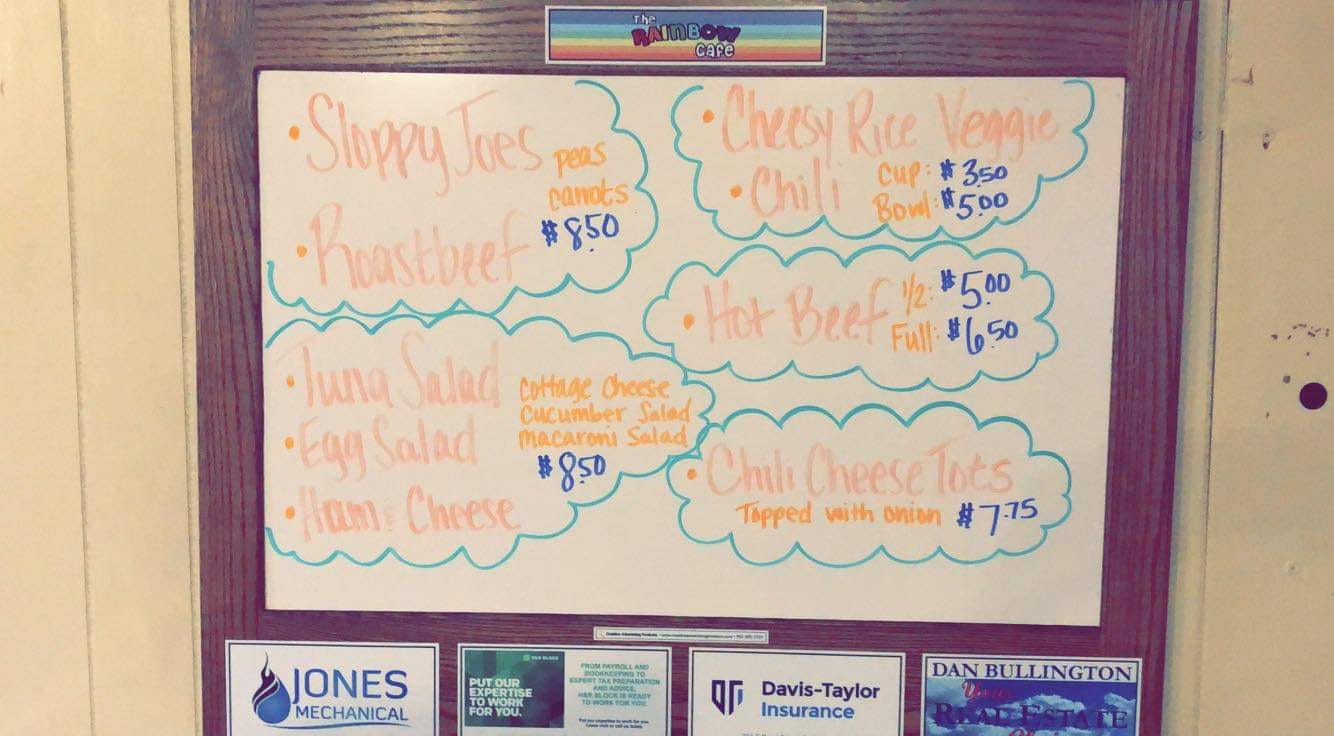 The
RAINBOW
Cafe
• Sloppy Joes
peas
carrots
$8.50
• Roastbeef
• Cheesy Rice Veggie
• Chili
Cup: $3.50
Bowl: $5.00
• Hot Beef
1/2: $5.00
Full: $6.50
• Tuna Salad
• Egg Salad
• Ham & Cheese
Cottage Cheese
Cucumber Salad
Macaroni Salad
$8.50
• Chili Cheese Tots
Topped with onion $7.75
JONES
MECHANICAL
H&R BLOCK
PUT OUR
EXPERTISE
TO WORK
FOR YOU.
FROM PAYROLL AND
BOOKKEEPING TO
EXPERT TAX PREPARATION
AND ADVICE,
H&R BLOCK IS READY
TO WORK FOR YOU
Davis-Taylor
Insurance
DAN BULLINGTON
Your
REAL ESTATE